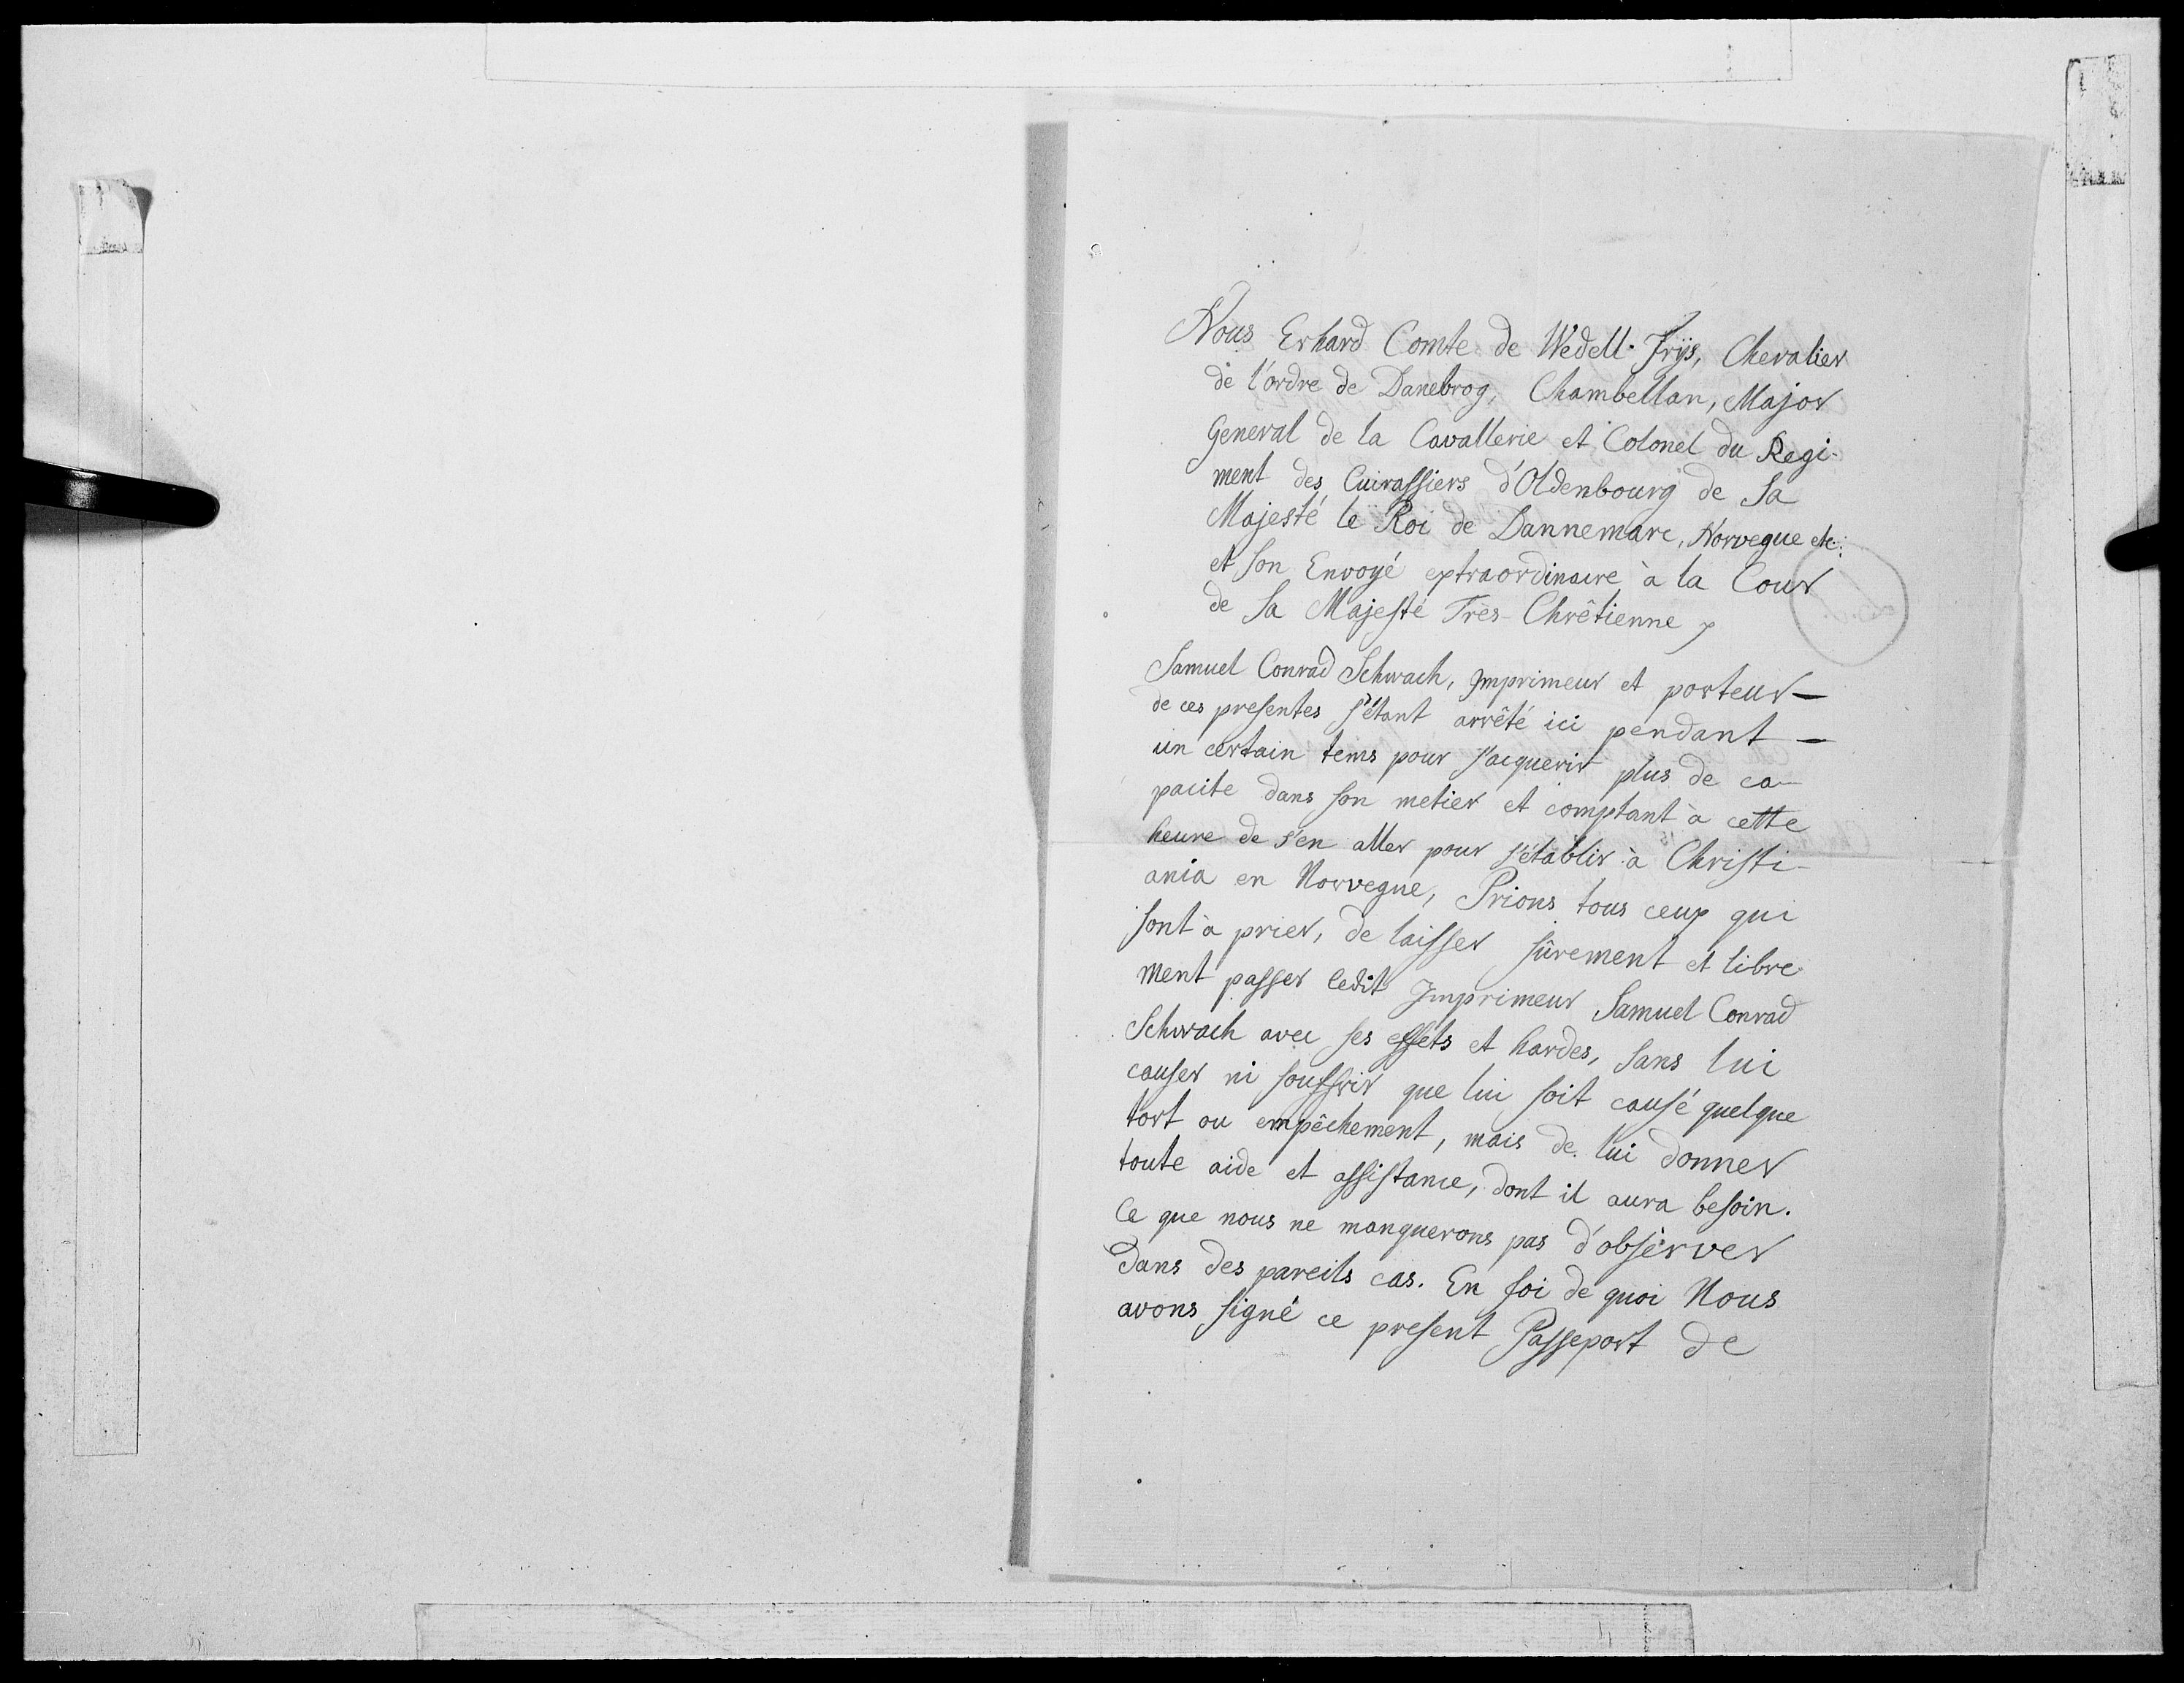 Nous Erhard Comte de Wedell-Frijs, Chevalier
de l'ordre de Danebrog, Chambellan, Major
General de la Cavallerie et Colonel du Regi-
ment des Cuirassiers d'Oldenbourg de Sa
Majesté le Roi de Dannemarc, Norvegue etc:
et son Envoyé extraordinaire à la Cour
de Sa Majesté Très-Chrêtienne,
Samuel Conrad Schwach, Imprimeur et porteur —
de ces presentes s'étant arrêté ici pendant —
un certain tems pour s'acquerir plus de ca-
pacite dans son metier et comptant à cette
heure de s'en aller pour s'établir à Christi-
ania en Norvegue, Prions tous ceux qui
sont à prier, de laisser sûrement et libre
ment passer ledit Imprimeur Samuel Conrad
Schwach avec ses effets et hardes, sans lui
causer ni souffrir que lui soit causé quelque
tort ou empêchement, mais de lui donner
toute aide et assistance, dont il aura besoin.
Ce que nous ne manquerons pas d'observer
dans des pareils cas. En foi de quoi Nous
avons signé ce present Passeport de